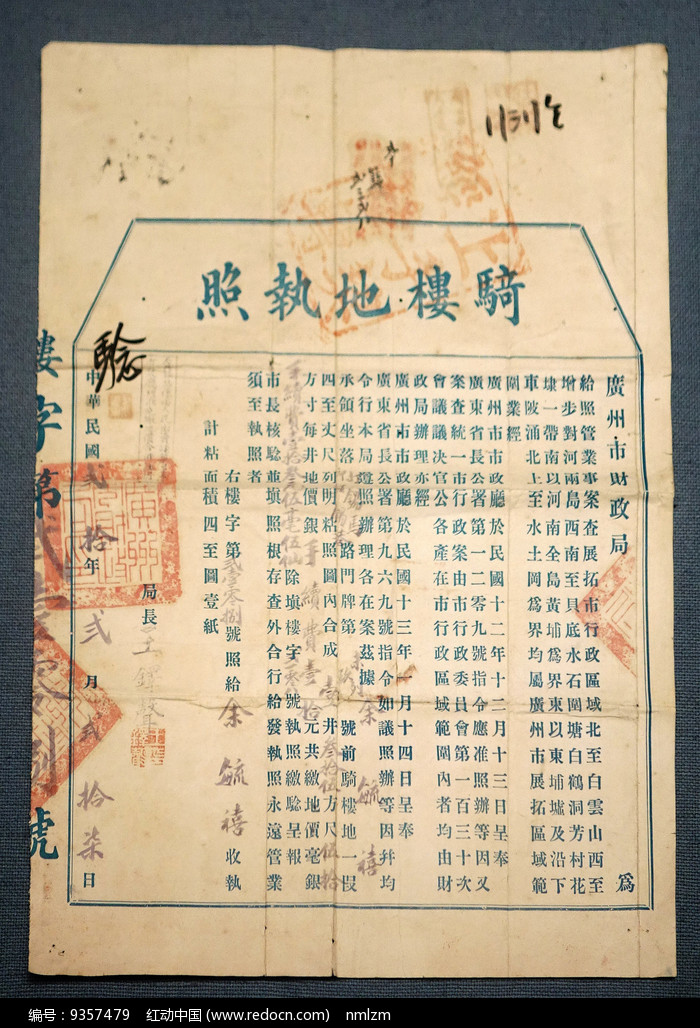 騎樓地執照
廣州市財政局 為
給照管業事案查展拓市行政區域北至白雲山西至
增步對河兩島西南至貝底水石圍塘白鶴洞芳村花
埭一帶南以河南全島黃埔為界東以東埔墟及沿下
車陂涌北上至水土岡為界均屬廣州市展拓區域範
圍業經
廣州市市政廳於民國十二年十二月十三日呈奉
廣東省長公署第一二零九號指令應准照辦等因又
案查統一市行政案由市行政委員會第一百三十次
會議議決官公各產在市行政區域範圍內者均由財
政局辦理亦經
廣州市市政廳於民國十三年一月十四日呈奉
廣東省長公署第九六九號指令如議照辦等因幷均
令行本局遵照辦理各在案茲據 余毓禧
承領坐落 路門牌第 號前騎樓地一假
四至丈尺列明粘照圖內合成壹井叁拾伍方尺伍拾
方寸每井地價銀 手續費壹拾元共繳地價毫銀
除填樓字 號執照繳驗呈報
市長核驗並填照根存查外合行給發執照永遠管業
須至執照者
右樓字第貳壹零捌號照給余毓禧收執
計粘面積四至圖壹紙
局長王
驗
中華民國貳拾年貳月貳拾柒日
樓字第貳壹零捌號
编号：9357479 红动中国 (www.redocn.com) nmlzm